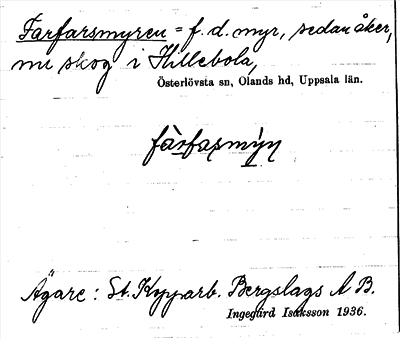 Farfarsmyren = f. d. myr, sedan åker,
nu skog i Hillebola,
Österlövsta sn, Olands hd, Uppsala län.
fàrfasmỳn
Ägare: St. Kopparb. Bergslags A B.
Ingegärd Isaksson 1936.